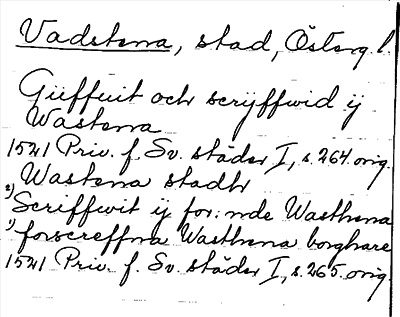 Vadstena, stad, Österg. l.
Giffuit och scryffwid ij
Wastena
1521 Priv. f. Sv. städer I, s. 264. orig.
Wastena stadh
2) Scriffwit ij for:nde Wasthena
1) forscreffna Wasthena borghare
1521 Priv. f. Sv. städer I, s. 265. orig.